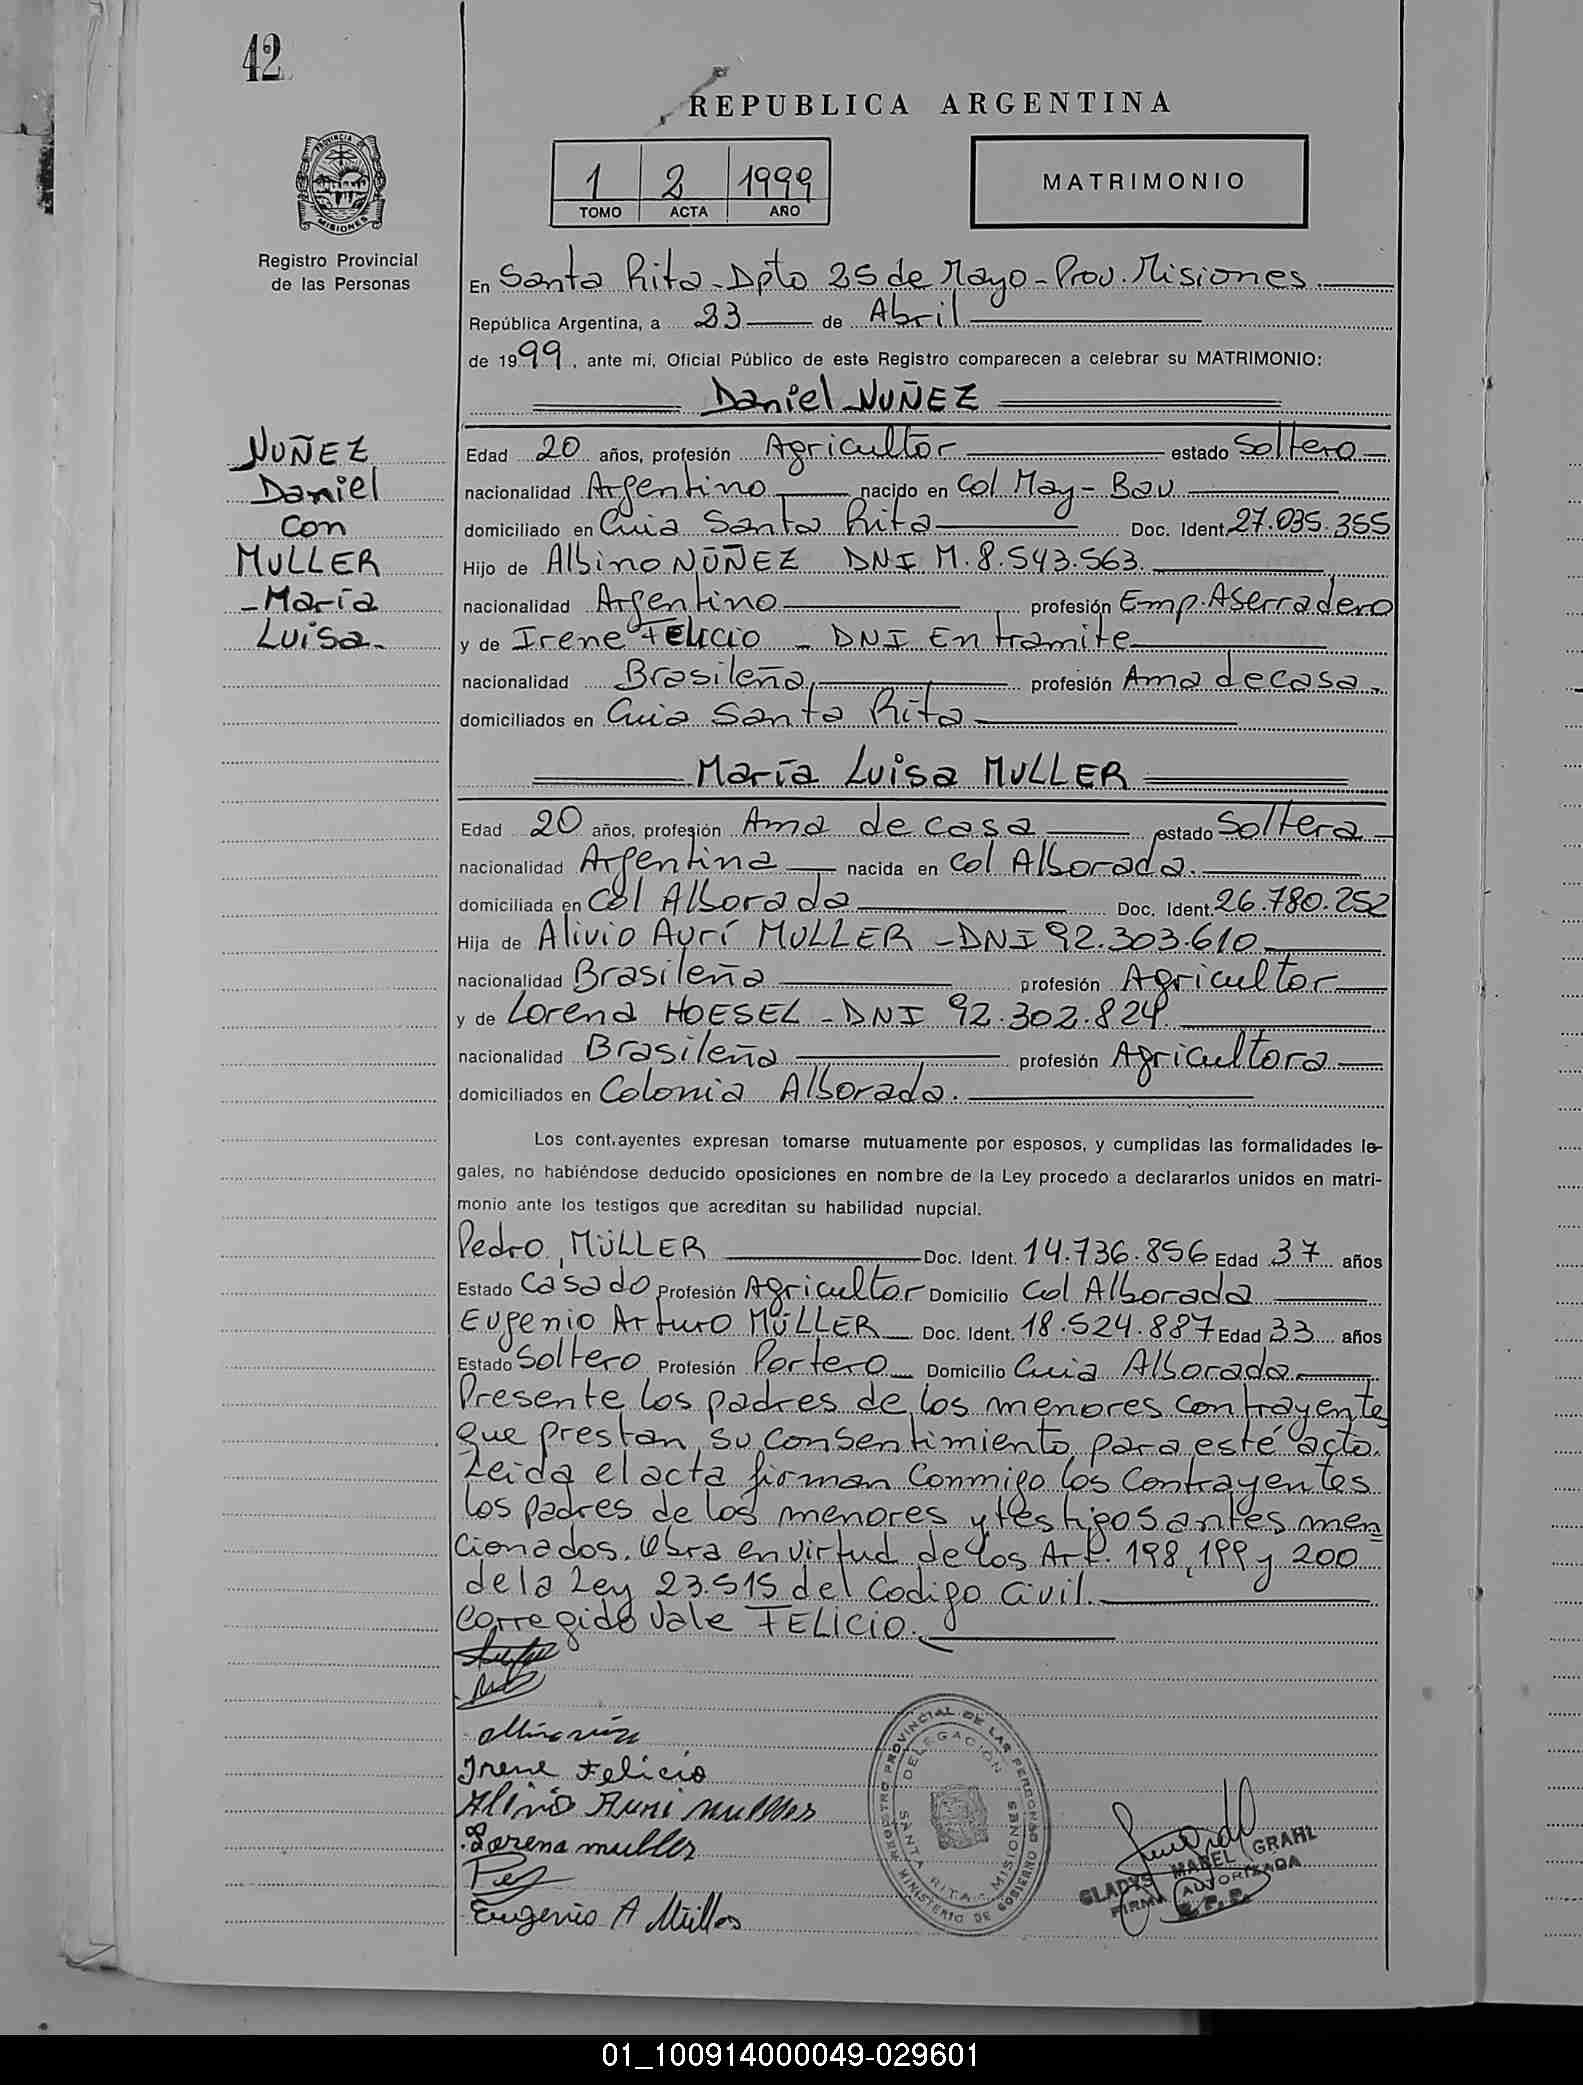 42
REPUBLICA ARGENTINA
PROVINCIA DE MISIONES
1 2 1999
TOMO ACTA AÑO
MATRIMONIO
Registro Provincial
de las Personas
En Santa Rita - Dpto 25 de Mayo - Prov. Misiones.
República Argentina, a 23 de Abril
de 1999, ante mí, Oficial Público de este Registro comparecen a celebrar su MATRIMONIO:
Daniel NUÑEZ
NUÑEZ
Daniel
con
MULLER
- María
Luisa.
Edad 20 años, profesión Agricultor estado Soltero
nacionalidad Argentino nacido en Col May - Bau
domiciliado en Cuia Santa Rita Doc. Ident. 27.035.355
Hijo de Albino NUÑEZ DNI M. 8.543.563.
nacionalidad Argentino profesión Emp. Aserradero
y de Irene FELICIO - DNI En tramite
nacionalidad Brasileña profesión Ama de casa.
domiciliados en Cuia Santa Rita
María Luisa MULLER
Edad 20 años, profesión Ama de casa estado Soltera
nacionalidad Argentina nacida en Col Alborada.
domiciliada en Col Alborada Doc. Ident. 26.780.252
Hija de Alivio Ayrí MULLER - DNI 92.303.610
nacionalidad Brasileña profesión Agricultor
y de Lorena HOESEL - DNI 92.302.824.
nacionalidad Brasileña profesión Agricultora
domiciliados en Colonia Alborada.
Los contrayentes expresan tomarse mutuamente por esposos, y cumplidas las formalidades le-
gales, no habiéndose deducido oposiciones en nombre de la Ley procedo a declararlos unidos en matri-
monio ante los testigos que acreditan su habilidad nupcial.
Pedro MÜLLER Doc. Ident. 14.736.856 Edad 37 años
Estado Casado Profesión Agricultor Domicilio Col Alborada
Eugenio Arturo MÜLLER Doc. Ident. 18.524.887 Edad 33 años
Estado Soltero Profesión Portero Domicilio Cuia Alborada
Presente los padres de los menores contrayentes
que prestan su consentimiento para esté acto.
Leida el acta firman conmigo los contrayentes
los padres de los menores y testigos antes men
cionados. Obra en virtud de los Art. 198, 199 y 200
de la Ley 23.515 del Codigo Civil.
Corregido Vale FELICIO.
Irene Felicio
Alivio Auri muller
Lorena muller
Eugenio A Müller
REGISTRO PROVINCIAL DE LAS PERSONAS MINISTERIO DE GOBIERNO
DELEGACIÓN SANTA RITA - MISIONES
GLADYS MABEL GRAHL
FIRMA AUTORIZADA
R. P. P.
01_100914000049-029601